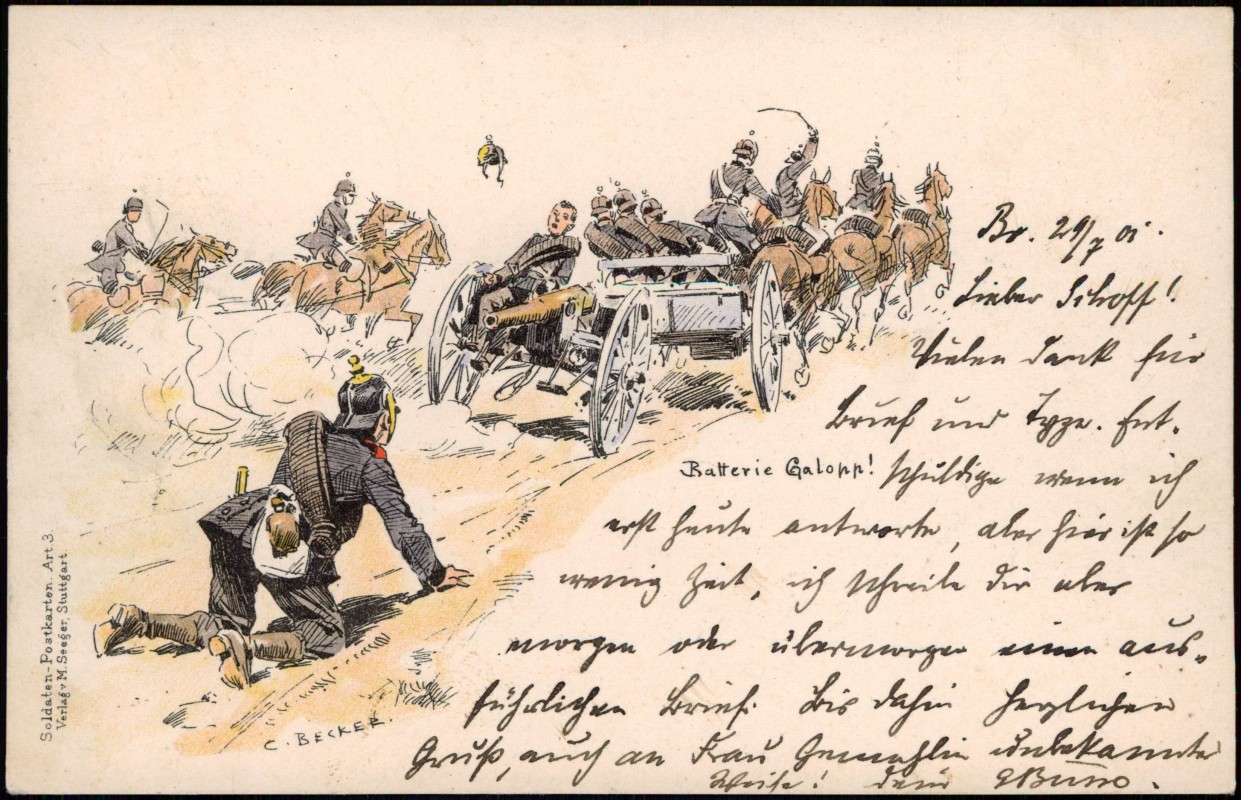 Br. 29/7 01.
Lieber Schoff!
Vielen Dank für
Brief und Type. Ent-
Batterie Galopp!
schuldige wenn ich
erst heute antworte, aber hier ist so
wenig Zeit, ich schreibe dir aber
morgen oder übermorgen einen aus-
führlichen Brief. Bis dahin herzlichen
Gruß, auch an Frau Gemahlin unbekannter
Weise! dein Bruno.
C. BECKER.
Soldaten-Postkarten. Art. 3.
Verlag v M. Seeger, Stuttgart